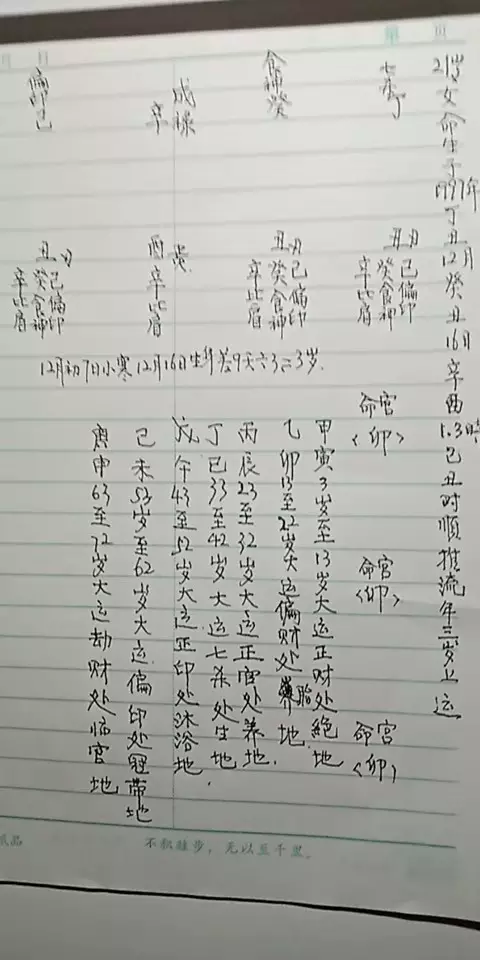 第 页
月 日
21岁女命生于1997年丁丑12月癸丑16日辛酉1.3時己丑时順推流年三岁上运
七杀丁
食神癸
成禄
辛
偏印己
丑月
己偏印
癸食神
辛比肩
丑月
己偏印
癸食神
辛比肩
酉
辛比肩
丑月
己偏印
癸食神
辛比肩
12月初7日小寒12月16日生
命宫
〈卯〉
命宫
〈卯〉
命宫
〈卯〉
甲寅3岁至13岁大运正财处絕地
乙卯13至22岁大运偏财处胎地.
丙辰23至32岁大运正官处养地.
丁巳33至42岁大运七杀处生地
戊午43至52岁大运正印处沐浴地.
己未53岁至62岁大运偏印处冠带地
庚申63至72岁大运劫财处临官地
不积跬步，无以至千里。
纸品